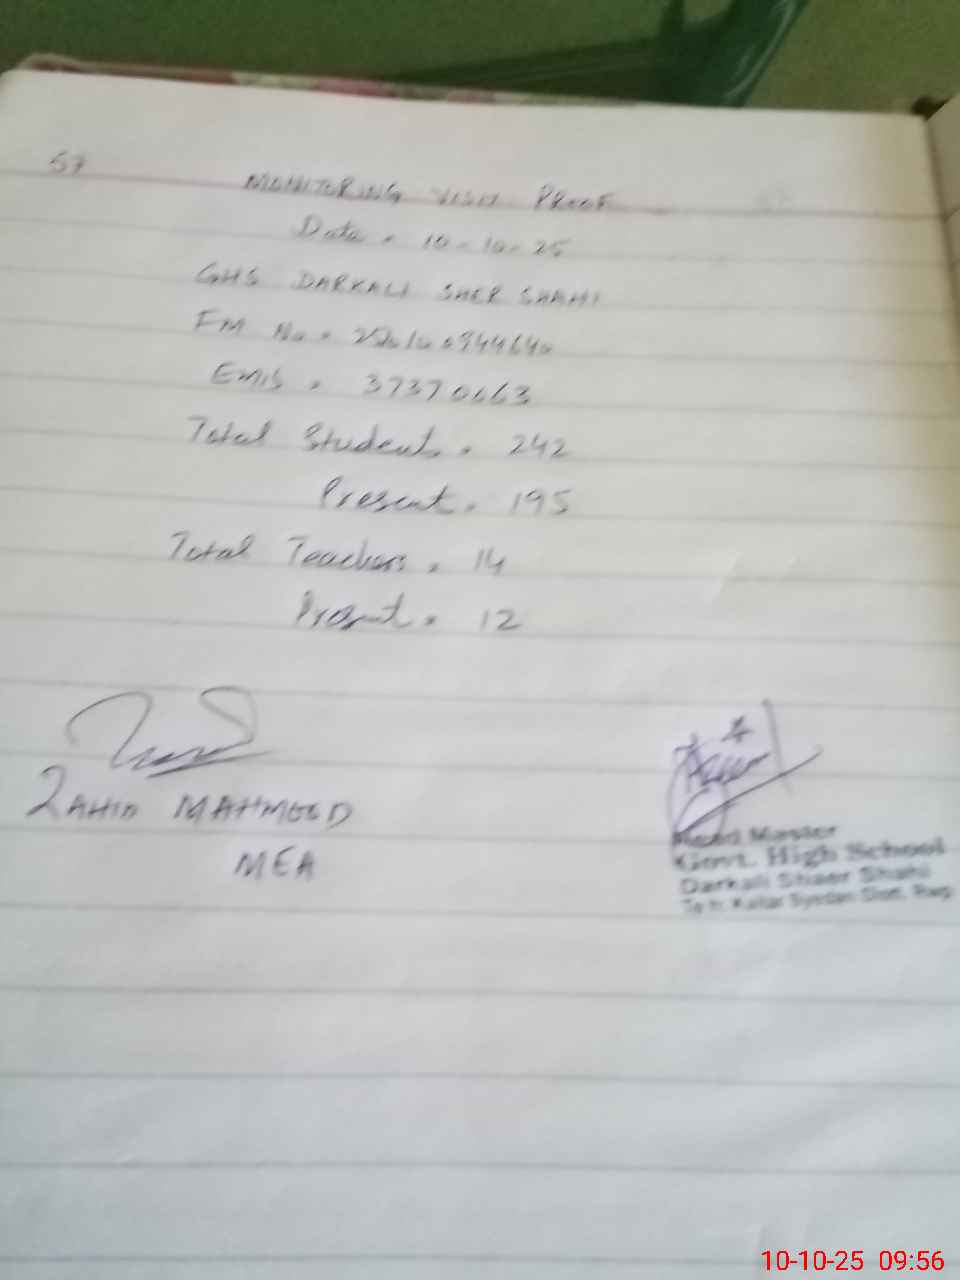 57
MONITORING VISIT PROOF
Date = 10-10-25
GHS DARKALI SHER SHAHI
FM No =
EMIS = 37370063
Total Students = 242
Present = 195
Total Teachers = 14
Present = 12
ZAHID MAHMOOD
MEA
Head Master
Govt. High School
Darkali Sheer Shahi
Teh: Kallar Syedan Distt. Rwp
10-10-25 09:56